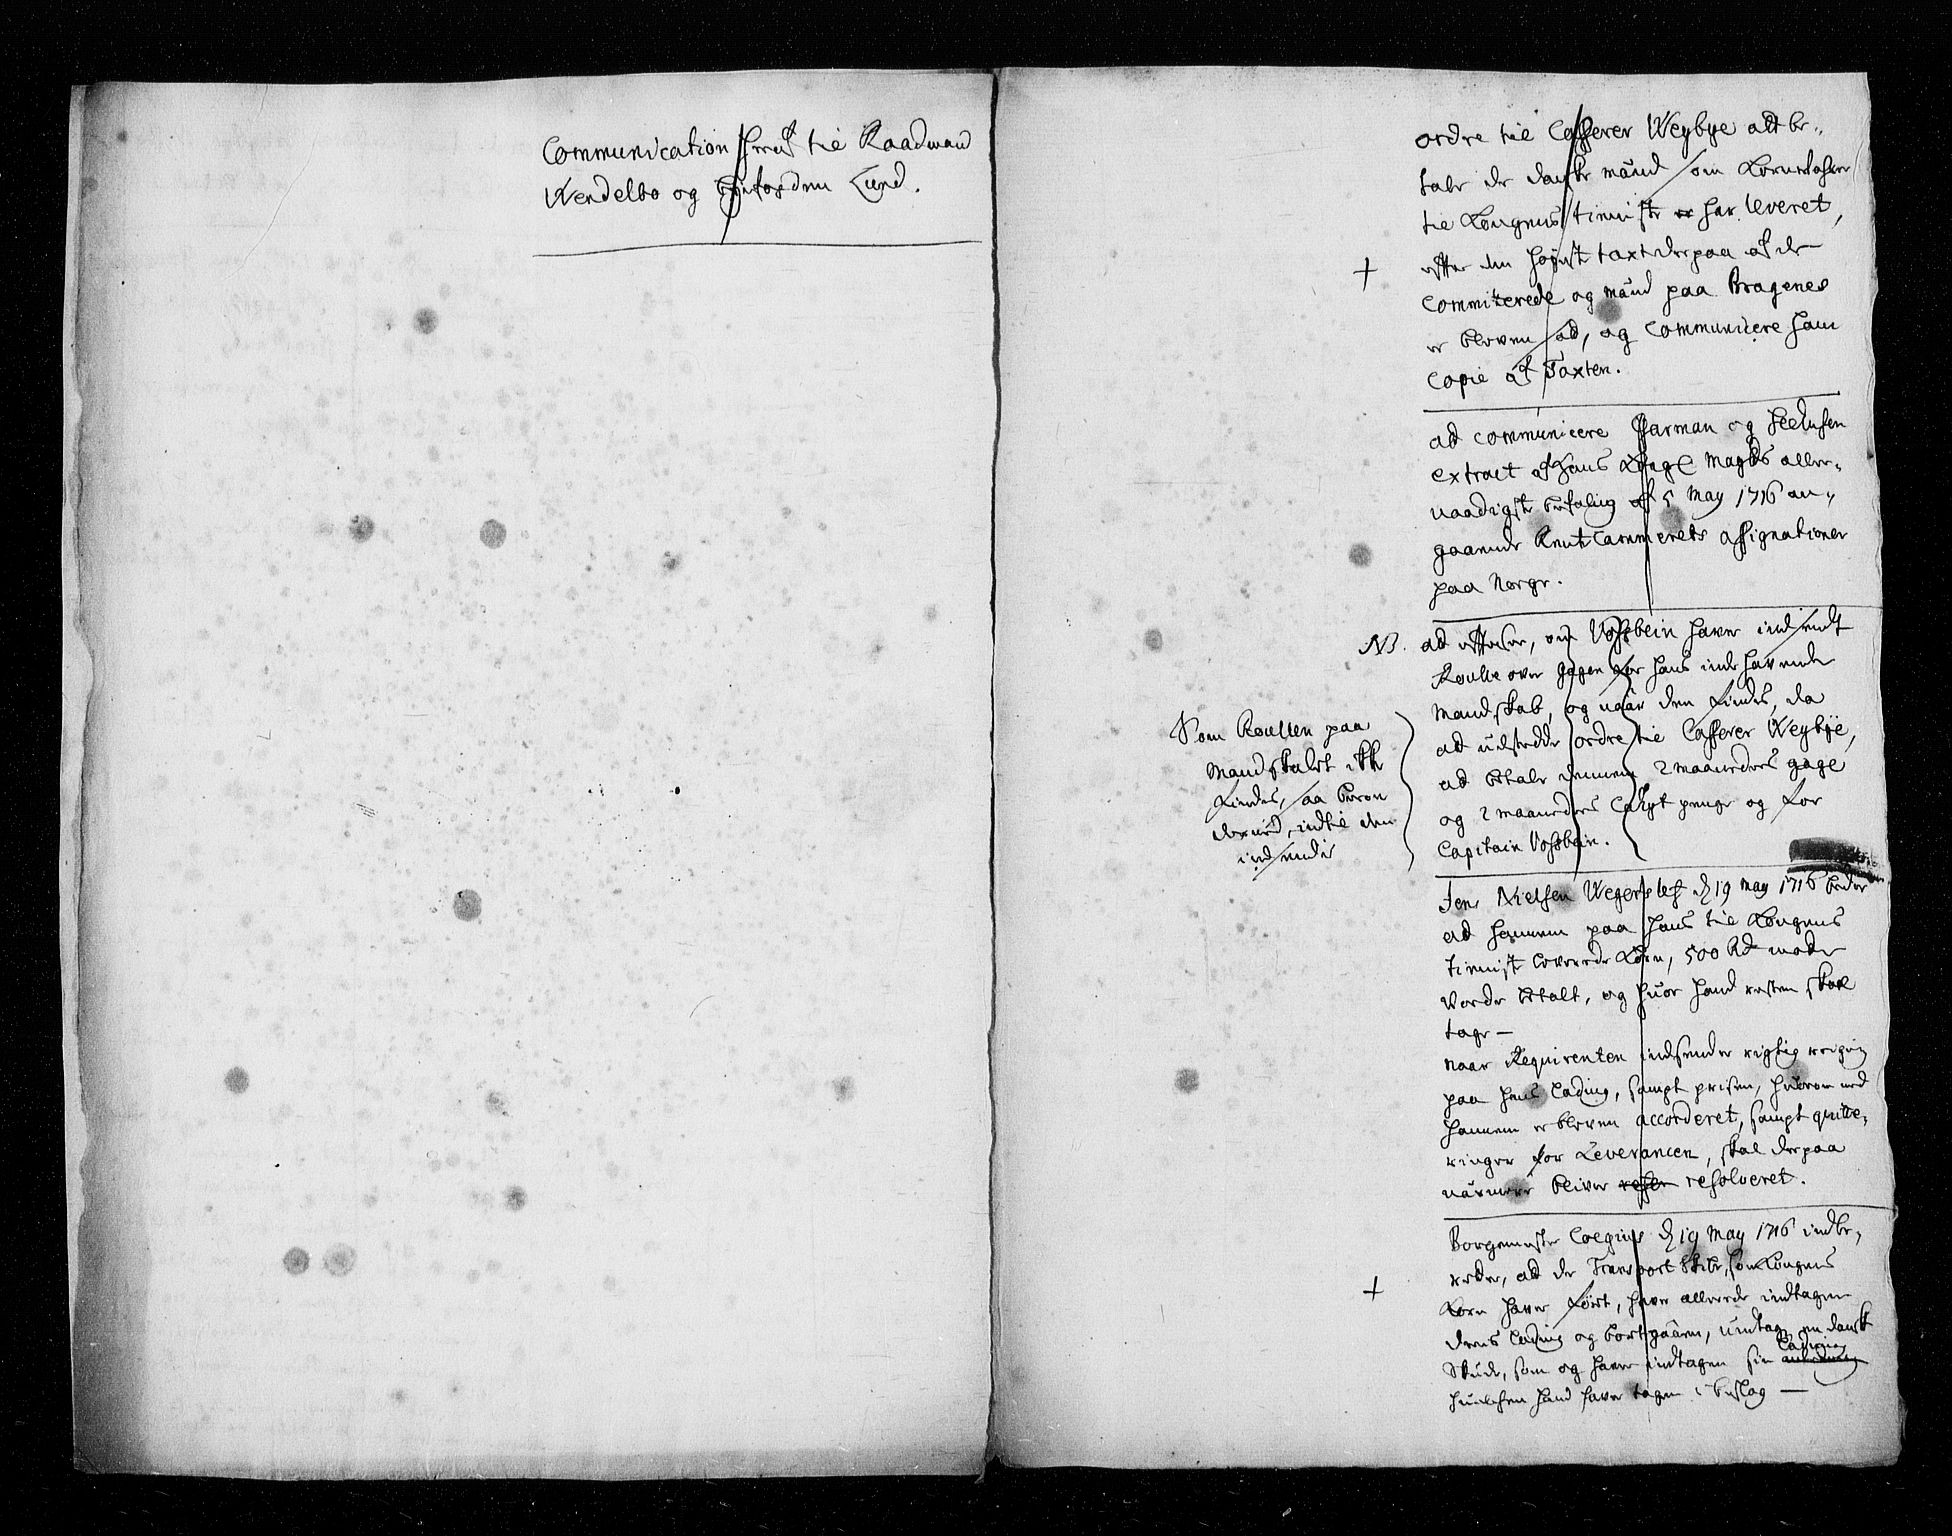 Communication heraf til Raadmand
Wendelbo og Lund.
ordre til Casserer Weybye att be„
tale de danske mænd som Korn
til Kongens tieniste har leveret,
efter den høyeste taxt derpaa af de
Committerede og mænd paa Bragenes
er bleven sad, og Communicere ham
Copie af Taxten.
ad Communicere Farman og
extract af Hans Kongl Mayts aller„
naadigste befaling af 5 May 1716 an„
gaaende RenteCammerets assignationer
paa Norge.
NB. ad efftersee, om Vossbein haver indsendt
Roulle over gagen for hans indehavende
Mandskab, og naar den findes, da
ad udstædde ordre til Casserer Weybye,
ad betale dennem 2 maaneders gage
og 2 maaneders penge og for
Capitain Vossbein.
Som Roullen paa
Mandskabet ikke
findes, saa beroer
dermed, indtil den
indsendis
Jens Nielsen d 19 May 1716 beder
ad hannem paa hans til Kongens
tienist leverede Korn, 500 Rd maatte
vorde betalt, og huor hand resten skal
tage —
naar Requirenten indsender rigtig
paa hans Lading, sampt prisen, huorom med
hannem er bleven accorderet, sampt quitte„
ringer for Leverancen, skal derpaa
nærmere bliver resolveret.
Borgemester Coegius d 19 May 1716 indbe„
retter, ad de Transport Skibe, som Kongens
Korn haver ført, haver allerede indtagen
deris Lading og bortgaaen, undtagen en dansk
Skude, som og haver indtagen sin Lading
huilchen hand haver tagen i beslag —